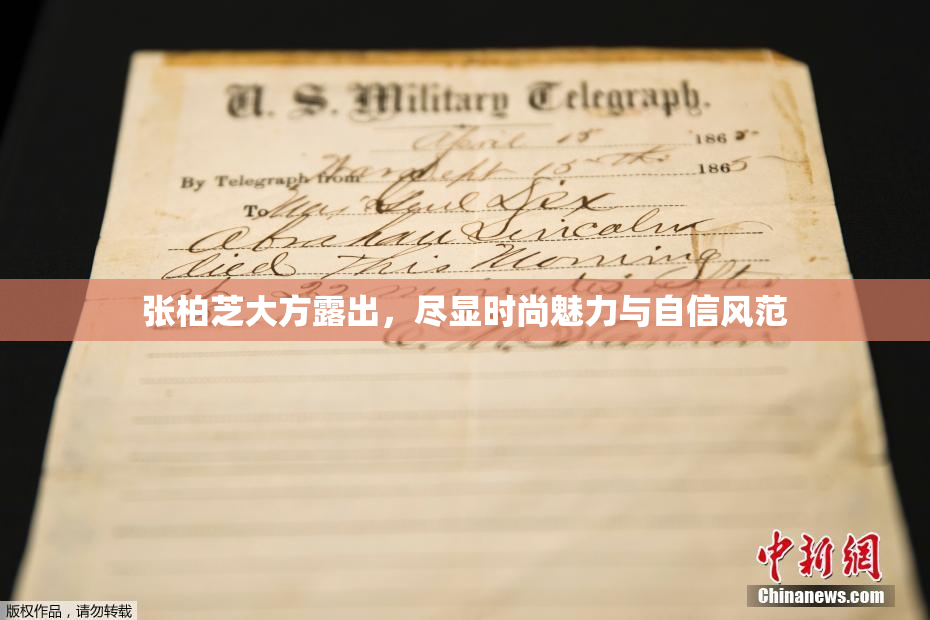 U. S. Military Telegraph.
April 15 1865
By Telegraph from War Dept 15th 1865
To Maj Genl Dix
Abraham Lincoln
died This Morning
at 22 minutes after
张柏芝大方露出，尽显时尚魅力与自信风范
E. M. Stanton
中新网
Chinanews.com
版权作品，请勿转载